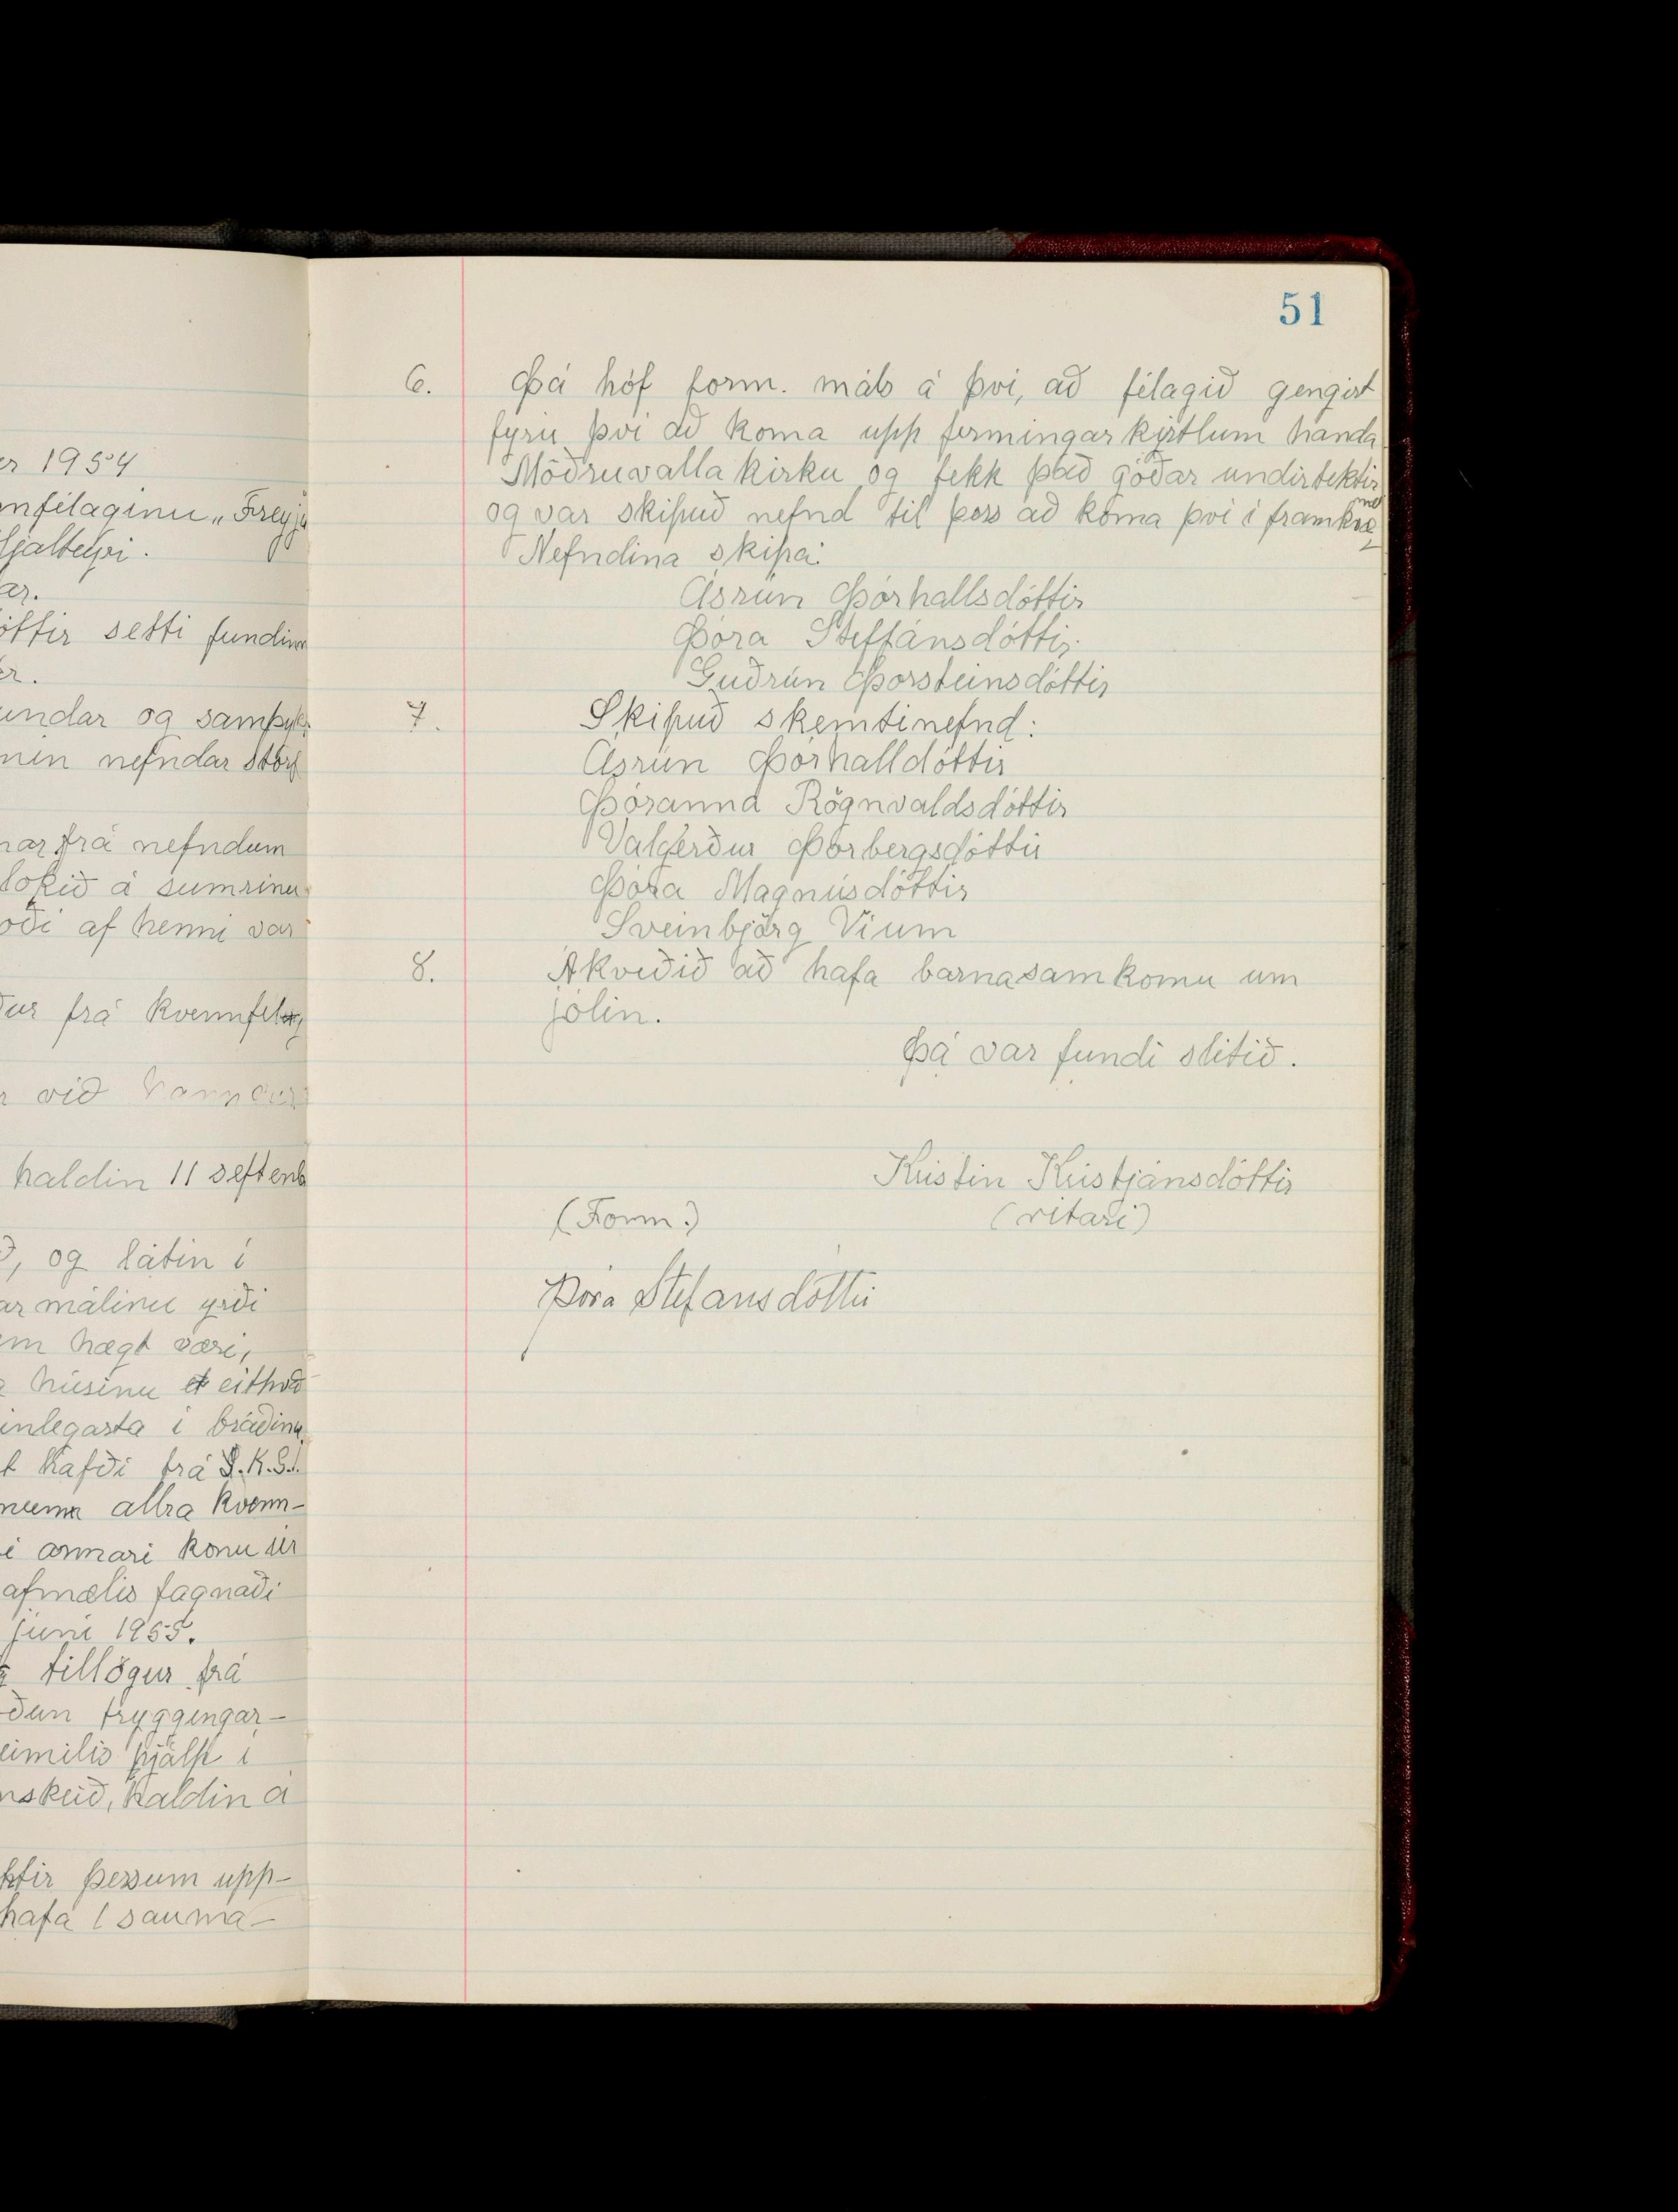 er 1954
nfélaginu „Freyju
Hjalteyri.
ar.
óttir setti fundinn
er.
undar og samþyk
nin nefndar störf
nar frá nefndum
lokið á sumrinu
oði af henni var
ður frá kvennfélag
við
haldin 11 seftemb
ð, og látin í
ar málinu yrði
em hægt væri,
húsinu eitthvað
inlegasta í bráðina
t hafði frá S.K.S.
allra kvenn-
i annari konu úr
afmælis fagnaði
júní 1955.
tillögur frá
ðun tryggingar-
eimilis hjálp í
nskeið, haldin á
ktir þessum upp-
hafa 1 sauma-
51
6. Þá hóf form. máls á því, að félagið gengist
fyrir því að koma upp fermingarkirtlum handa
Möðruvalla kirku og fekk það góðar undirtektir
og var skipuð nefnd til þess að koma því í framkvæmd
Nefndina skipa:
Ásrún Þórhallsdóttir
Þóra Steffánsdóttir
Guðrún Þorsteinsdóttir
7. Skipuð skemtinefnd:
Ásrún Þórhalldóttir
Þóranna Rögnvaldsdóttir
Valgerður Þorbergsdóttir
Þóra Magnúsdóttir
Sveinbjörg Vium
8. Ákveðið að hafa barnasamkomu um
jólin.
Þá var fundi slitið.
Kristín Kristjánsdóttir
(Form.) (ritari)
Þóra Stefansdóttir